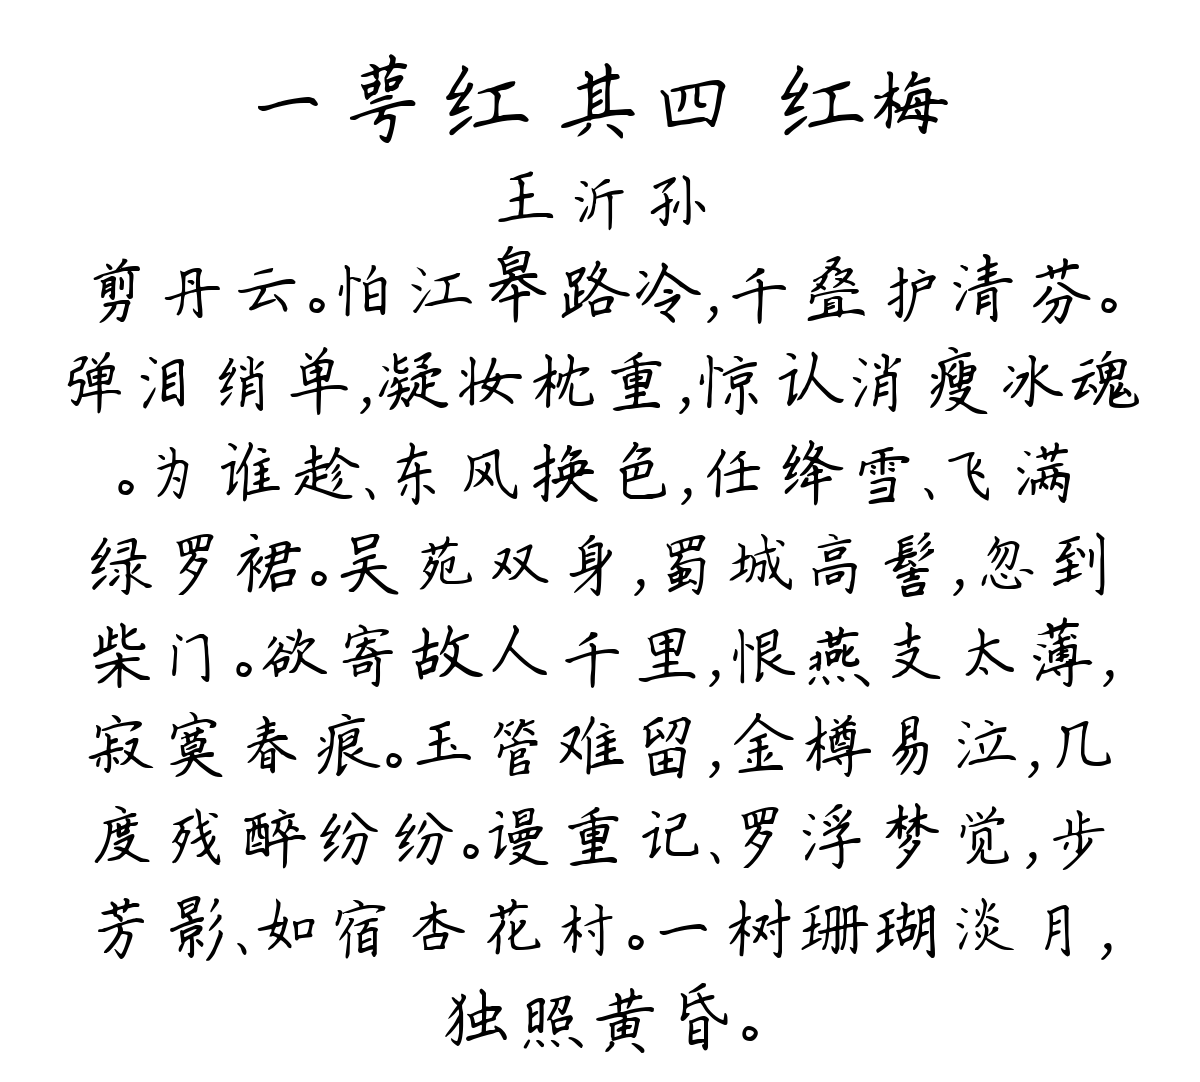 一萼红 其四 红梅
王沂孙
剪丹云。怕江皋路冷,千叠护清芬。
弹泪绡单,凝妆枕重,惊认消瘦冰魂
。为谁趁、东风换色,任绛雪、飞满
绿罗裙。吴苑双身,蜀城高髻,忽到
柴门。欲寄故人千里,恨燕支太薄,
寂寞春痕。玉管难留,金樽易泣,几
度残醉纷纷。谩重记、罗浮梦觉,步
芳影、如宿杏花村。一树珊瑚淡月,
独照黄昏。